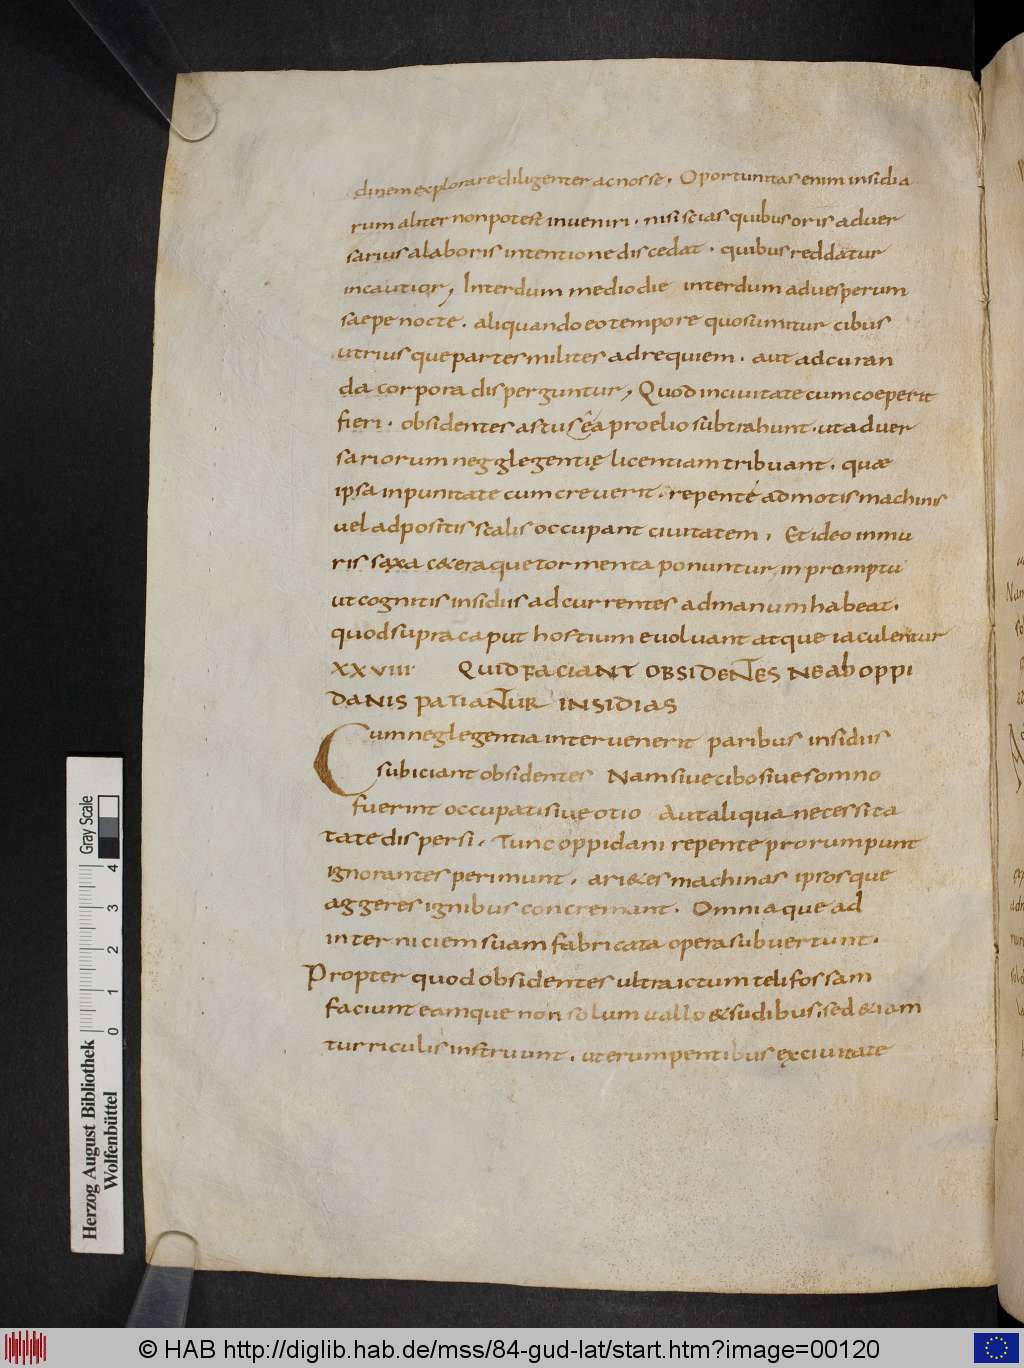 dinem explorare diligenter ac nosse. Oportunitas enim insidia
rum aliter non potest inveniri. nisi scias quibus oris adver
sarius a laboris intentione discedat. quibus reddatur
incautior, Interdum medio die interdum ad vesperum
saepe nocte. aliquando eo tempore quo sumitur cibus
utriusque partes milites ad requiem. aut ad curan
da corpora disperguntur, Quod in civitate cum coeperit
fieri. obsidentes astu se a proelio subtrahunt. ut adver
sariorum neg glegentię licentiam tribuant. quae
ipsa inpunitate cum creverit. repente admotis machinis
vel adpositis scalis occupant civitatem, Et ideo in mu
ris saxa c&eraque tormenta ponuntur, in promptu
ut cognitis insidiis adcurrentes ad manum habeat.
quod supra caput hostium evolvant atque iaculentur
XXVIII QUID FACIANT OBSIDENTES NE AB OPPI
DANIS PATIANTUR INSIDIAS
Cum neglegentia intervenerit paribus insidiis
subiciant obsidentes Nam sive cibo sive somno
fuerint occupati sive otio Aut aliqua necessita
tate dispersi. Tunc oppidani repente prorumpunt
ignorantes perimunt. ari&es machinas ipsosque
aggeres ignibus concremant. Omniaque ad
in terniciem suam fabricata opera subvertunt.
Propter quod obsidentes ultra ictum teli fossam
faciunt eamque non solum vallo & sudibus; sed &iam
turriculis instruunt. ut erumpentibus ex civitate
Herzog August Bibliothek
Wolfenbüttel
0 1 2 3 4
Gray Scale
© HAB http://diglib.hab.de/mss/84-gud-lat/start.htm?image=00120